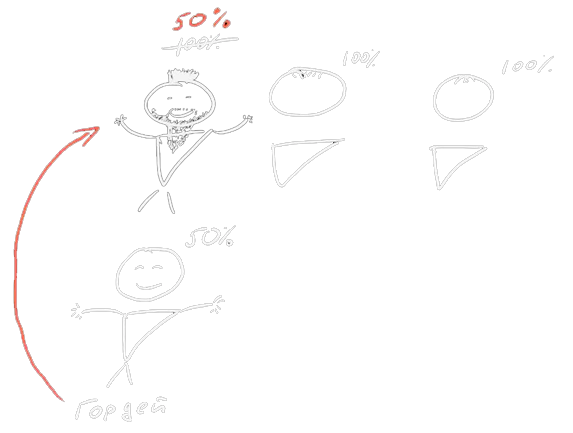 50%
100%
100%
100%
50%
Гордей